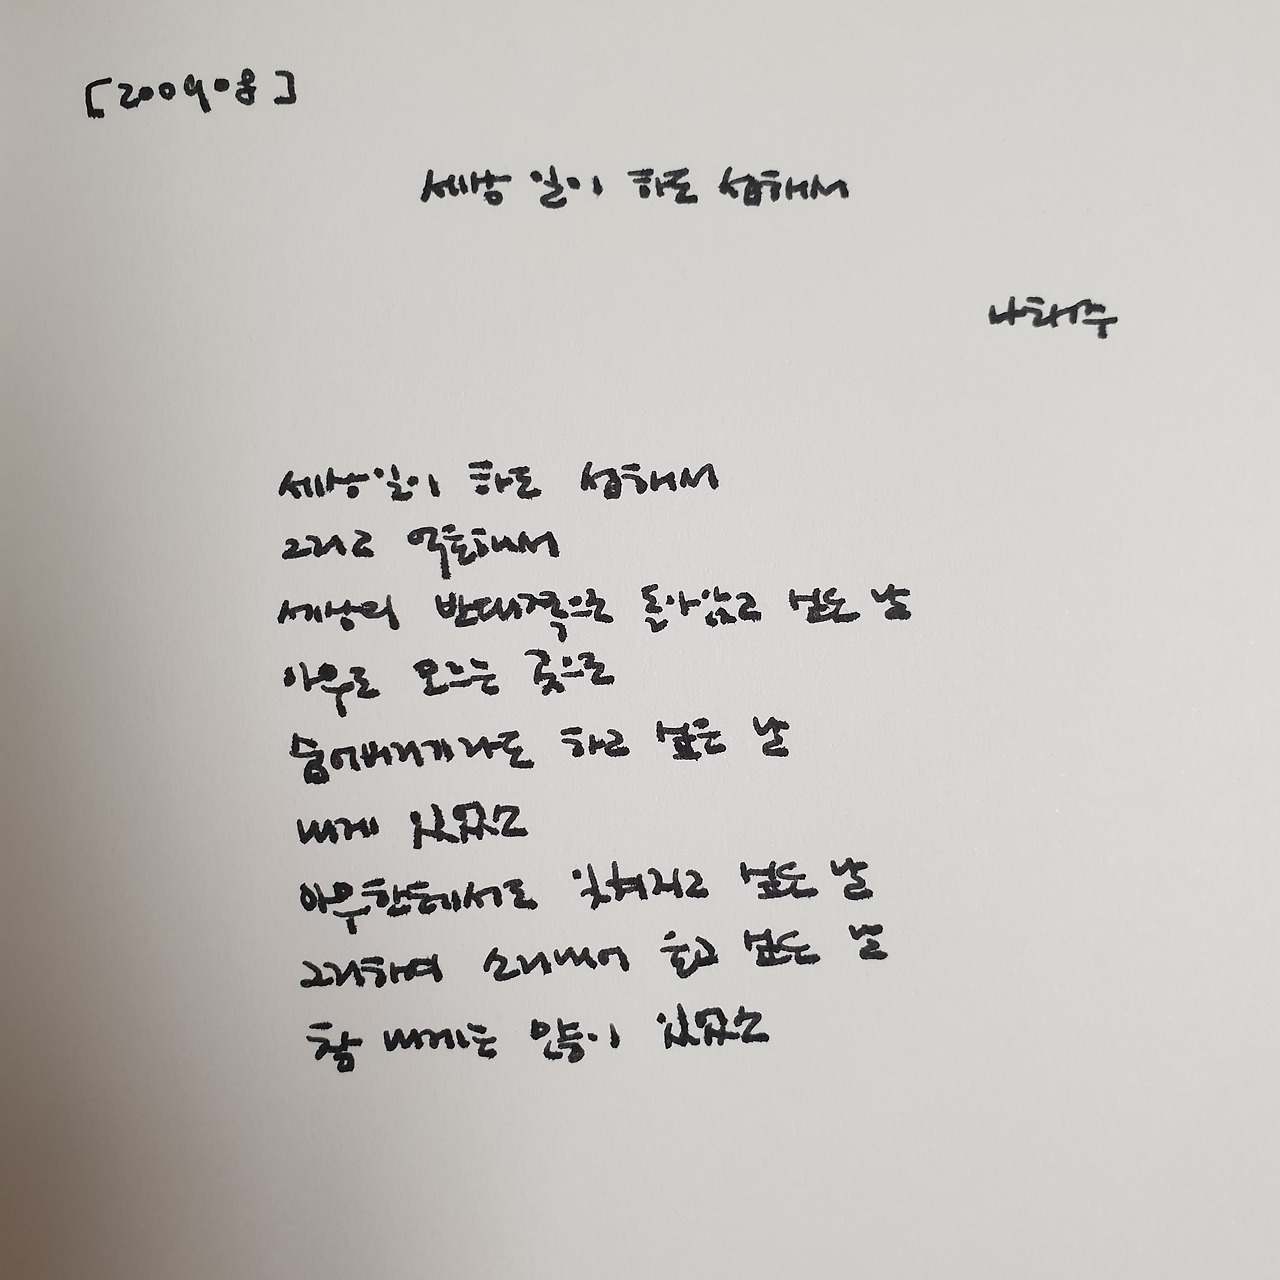 세상 일이 하도 섭해서
나태주
세상일이 하도 섭해서
그리고 억울해서
세상의 반대쪽으로 돌아앉고 싶은 날
아무도 모르는 곳으로
숨어버리기라도 하고 싶은 날
내게 있었소
아무한테서도 잊혀지고 싶은 날
그리하여 소리내어 울고 싶은 날
참 내게는 많이 있었소